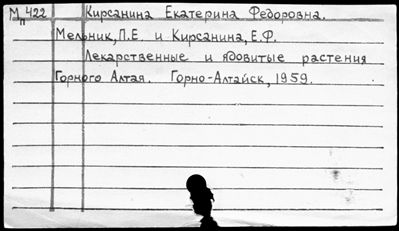 Мп 422 Кирсанина Екатерина Федоровна.
Мельник, П.Е. и Кирсанина, Е.Ф.
Лекарственные и ядовитые растения
Горного Алтая. Горно-Алтайск, 1959.